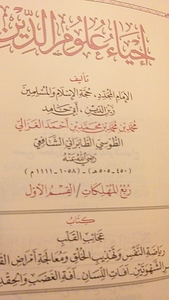 إحياء علوم الدين
تأليف
الإمام المجدد، حجة الإسلام والمسلمين
زين الدين، أبي حامد
محمد بن محمد بن محمد بن أحمد الغزالي
الطوسي الطابراني الشافعي
رضي الله عنه
(٤٥٠-٥٠٥هـ)-(١٠٥٨-١١١١م)
ربع المهلكات / القسم الأول
كتاب
عجائب القلب
رياضة النفس وتهذيب الخلق ومعالجة أمراض القلب
الشهوتين - آفات اللسان - آفة الغضب والحقد